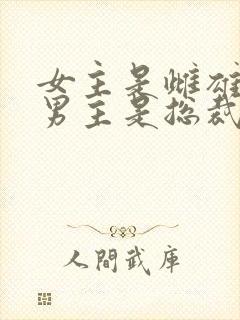 女主是雌雄
男主是总裁
人間武庫